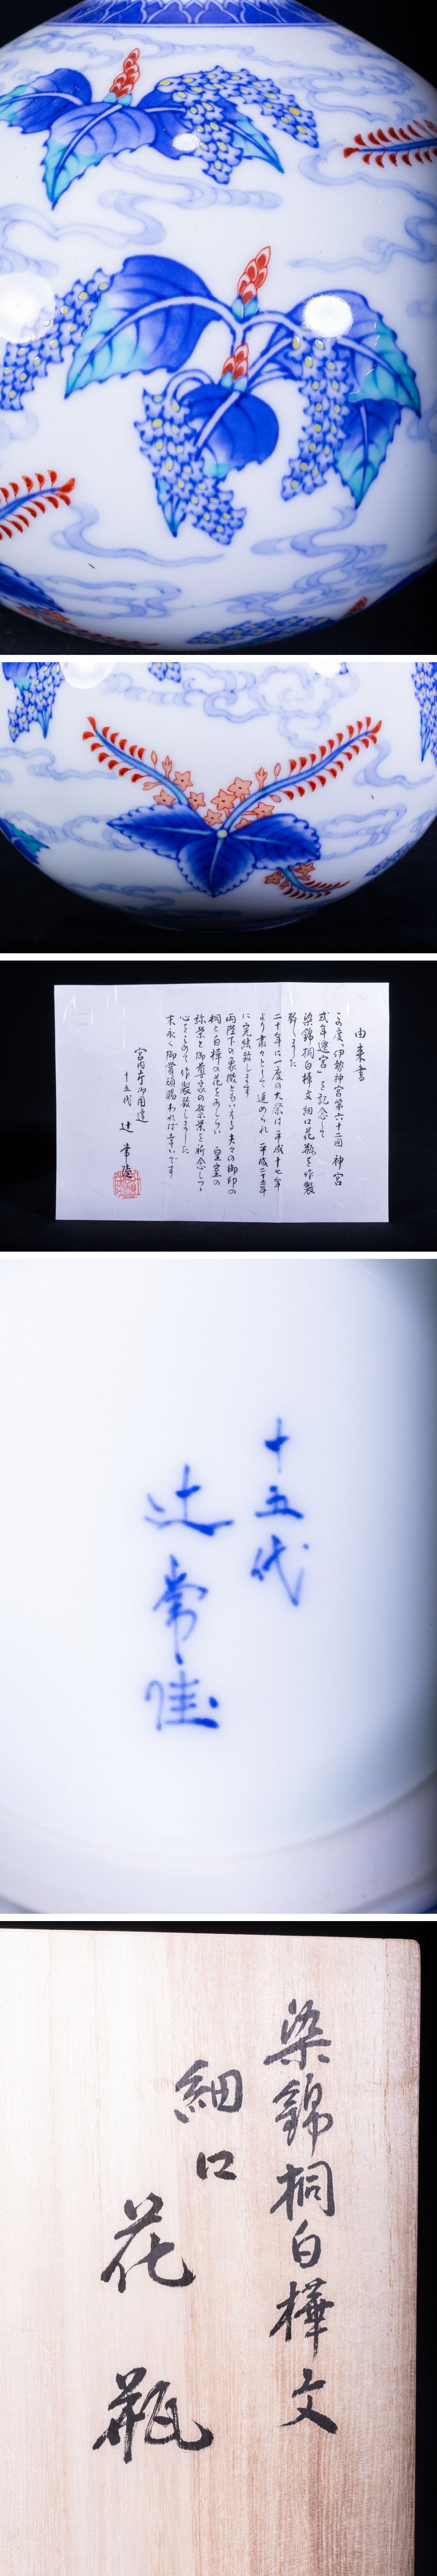 由来書
この度、伊勢神宮第六十二回 神宮
式年遷宮を記念して
染錦桐白樺文細口花瓶を作製
致しました
二十年に一度の大祭は平成十七年
より粛々として進められ 平成二十五年
に完結致します
両陛下の象徴ともいえる夫々の御印の
桐と白樺の花をあしらい 皇室の
弥栄と御尊家の繁栄を祈念しつゝ
心をこめて作製致しました
末永く御賞頑賜われば幸いです
宮内庁御用達
十五代 辻 常陸
十五代
辻常陸
染錦桐白樺文
細口
花瓶